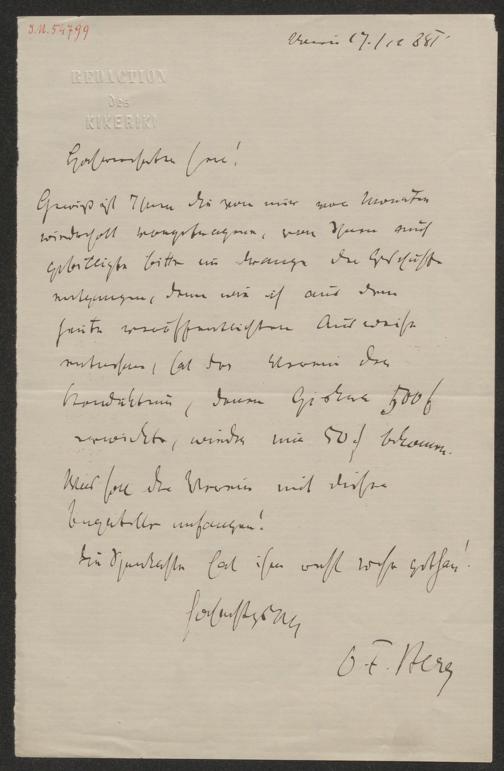 J.N. 54799
Wien 17./12 881
REDACTION
des
KIKERIKI
Hochverehrter Herr!
Gewiß ist Ihnen die von mir vor Monaten
wiederholt vorgetragene, von Ihnen auch
gebilligte Bitte im Drange der Geschäfte
entgangen, denn wie ich aus dem
heute veröffentlichten Ausweise
entnehme, hat der Verein der
Kondukteure, denen Giskra 500 f
erwirkte, wieder nur 50 f bekommen.
Was soll der Verein mit dieser
Bagatelle anfangen!
Die Sparkasse hat ihm wohl wehe gethan!
Hochachtungsvoll
O. F. Berg